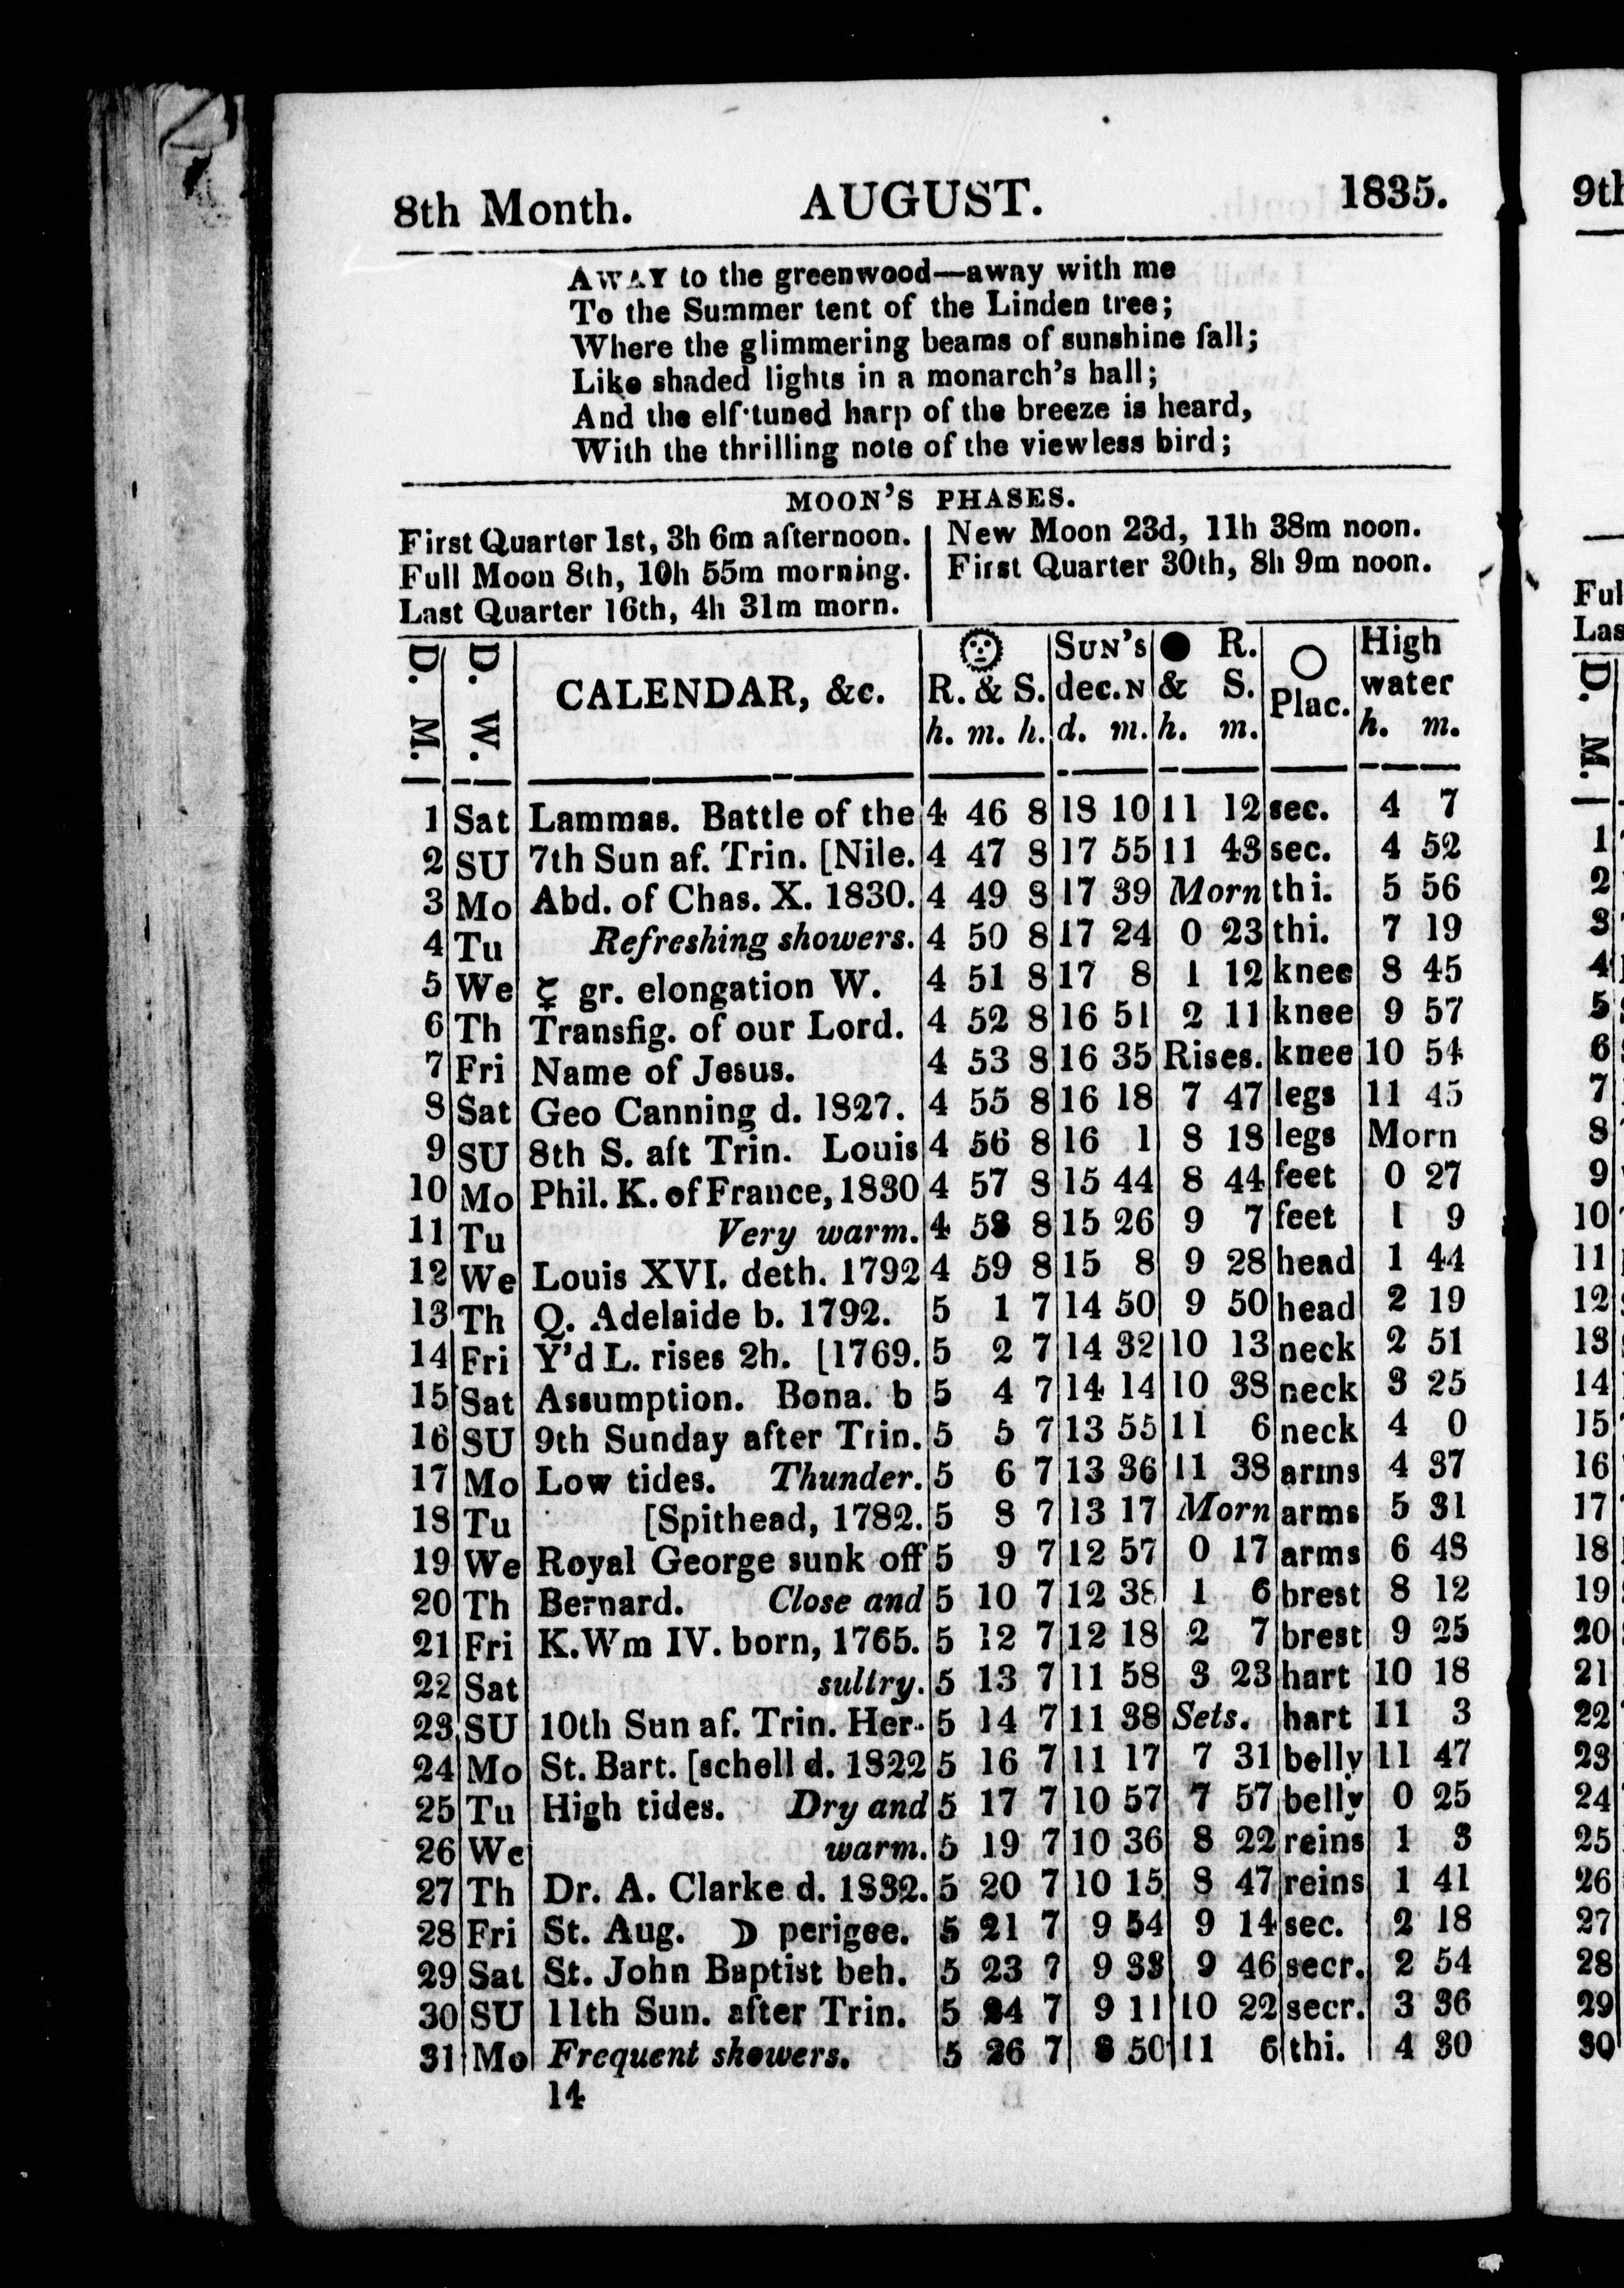 8th Month. AUGUST. 1835.
AWAY to the greenwood—away with me
To the Summer tent of the Linden tree;
Where the glimmering beams of sunshine fall;
Like shaded lights in a monarch's hall;
And the elf-tuned harp of the breeze is heard,
With the thrilling note of the viewless bird;
MOON'S PHASES.
First Quarter 1st, 3h 6m afternoon.
Full Moon 8th, 10h 55m morning.
Last Quarter 16th, 4h 31m morn.
New Moon 23d, 11h 38m noon.
First Quarter 30th, 8h 9m noon.
D. M. D. W. CALENDAR, &c. R. & S. h. m. h. SUN'S dec. N d. m. ● R. & S. h. m. ○ Plac. High water h. m.
1 Sat Lammas. Battle of the 4 46 8 18 10 11 12 sec. 4 7
2 SU 7th Sun af. Trin. [Nile. 4 47 8 17 55 11 43 sec. 4 52
3 Mo Abd. of Chas. X. 1830. 4 49 8 17 39 Morn thi. 5 56
4 Tu Refreshing showers. 4 50 8 17 24 0 23 thi. 7 19
5 We ☿ gr. elongation W. 4 51 8 17 8 1 12 knee 8 45
6 Th Transfig. of our Lord. 4 52 8 16 51 2 11 knee 9 57
7 Fri Name of Jesus. 4 53 8 16 35 Rises. knee 10 54
8 Sat Geo Canning d. 1827. 4 55 8 16 18 7 47 legs 11 45
9 SU 8th S. aft Trin. Louis 4 56 8 16 1 8 18 legs Morn
10 Mo Phil. K. of France, 1830 4 57 8 15 44 8 44 feet 0 27
11 Tu Very warm. 4 58 8 15 26 9 7 feet 1 9
12 We Louis XVI. deth. 1792 4 59 8 15 8 9 28 head 1 44
13 Th Q. Adelaide b. 1792. 5 1 7 14 50 9 50 head 2 19
14 Fri Y'd L. rises 2h. [1769. 5 2 7 14 32 10 13 neck 2 51
15 Sat Assumption. Bona. b 5 4 7 14 14 10 38 neck 3 25
16 SU 9th Sunday after Trin. 5 5 7 13 55 11 6 neck 4 0
17 Mo Low tides. Thunder. 5 6 7 13 36 11 38 arms 4 37
18 Tu [Spithead, 1782. 5 8 7 13 17 Morn arms 5 31
19 We Royal George sunk off 5 9 7 12 57 0 17 arms 6 48
20 Th Bernard. Close and 5 10 7 12 38 1 6 brest 8 12
21 Fri K. Wm IV. born, 1765. 5 12 7 12 18 2 7 brest 9 25
22 Sat sultry. 5 13 7 11 58 3 23 hart 10 18
23 SU 10th Sun af. Trin. Her- 5 14 7 11 38 Sets. hart 11 3
24 Mo St. Bart. [schell d. 1822 5 16 7 11 17 7 31 belly 11 47
25 Tu High tides. Dry and 5 17 7 10 57 7 57 belly 0 25
26 We warm. 5 19 7 10 36 8 22 reins 1 3
27 Th Dr. A. Clarke d. 1832. 5 20 7 10 15 8 47 reins 1 41
28 Fri St. Aug. ☽ perigee. 5 21 7 9 54 9 14 sec. 2 18
29 Sat St. John Baptist beh. 5 23 7 9 33 9 46 secr. 2 54
30 SU 11th Sun. after Trin. 5 24 7 9 11 10 22 secr. 3 36
31 Mo Frequent showers. 5 26 7 8 50 11 6 thi. 4 30
14
9th
Ful
Las
D. M.
1
2
3
4
5
6
7
8
9
10
11
12
13
14
15
16
17
18
19
20
21
22
23
24
25
26
27
28
29
30